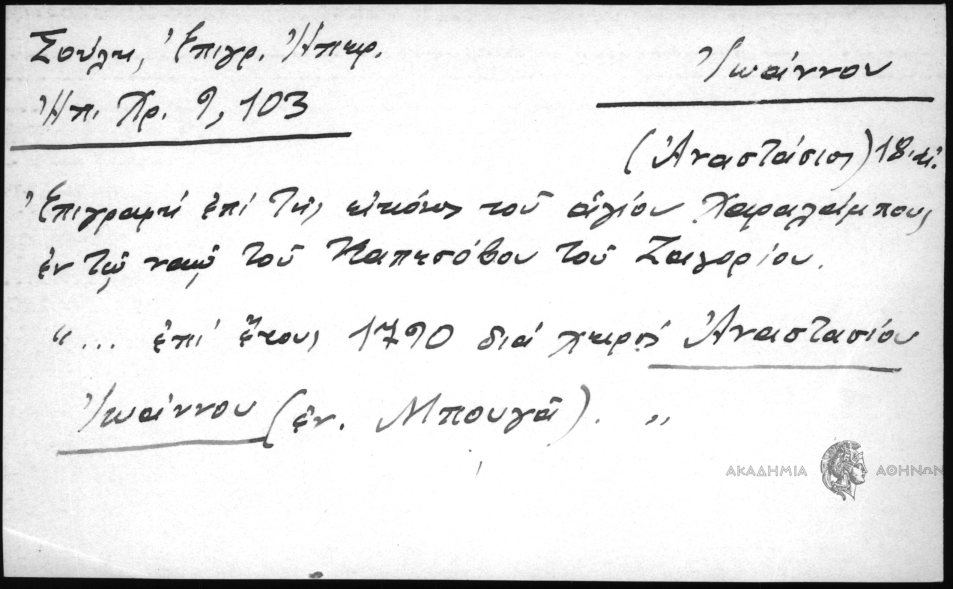 Σούλη, Ἐπιγρ. Ἠπειρ.
Ἠπ. Χρ. 9, 103
Ἰωάννου
(Ἀναστάσιος) 18 αἰ.
Ἐπιγραφή ἐπί τῆς εἰκόνος τοῦ ἁγίου Χαραλάμπους
ἐν τῷ ναῷ τοῦ Καπεσόβου τοῦ Ζαγορίου.
"... ἐπί ἔτους 1790 διά χειρός Ἀναστασίου
Ἰωάννου (ἐν. Μπουγᾶ). "
ΑΚΑΔΗΜΙΑ ΑΘΗΝΩΝ